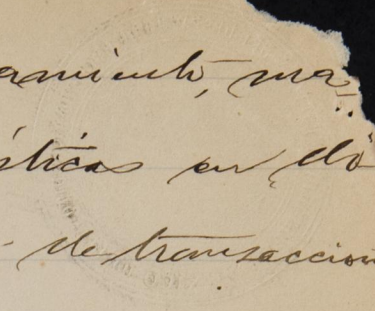 amiento, ma
ísticas en dó
- de transaccion